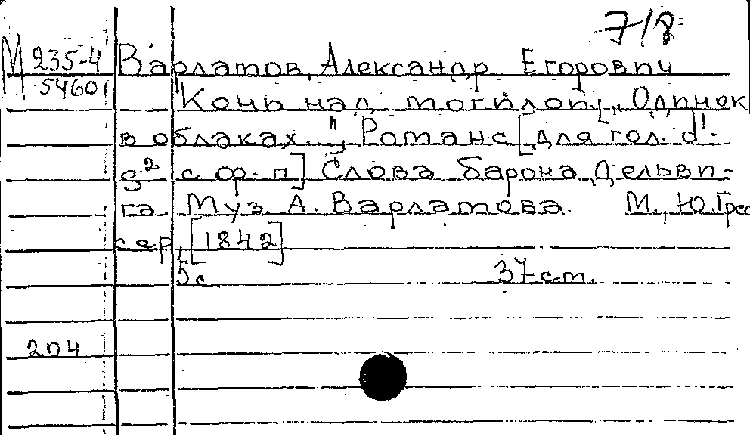 718
М 235-4 Варламов, Александр Егорович
54601 "Конь над могилой, Одинок
в облаках...", Романс [для гол. d¹-
g² с ф.-п] Слова барона Дельви-
га. Муз. А. Варламова. М., Ю. Грес
сер, [1842]
5 с 37 ст.
204